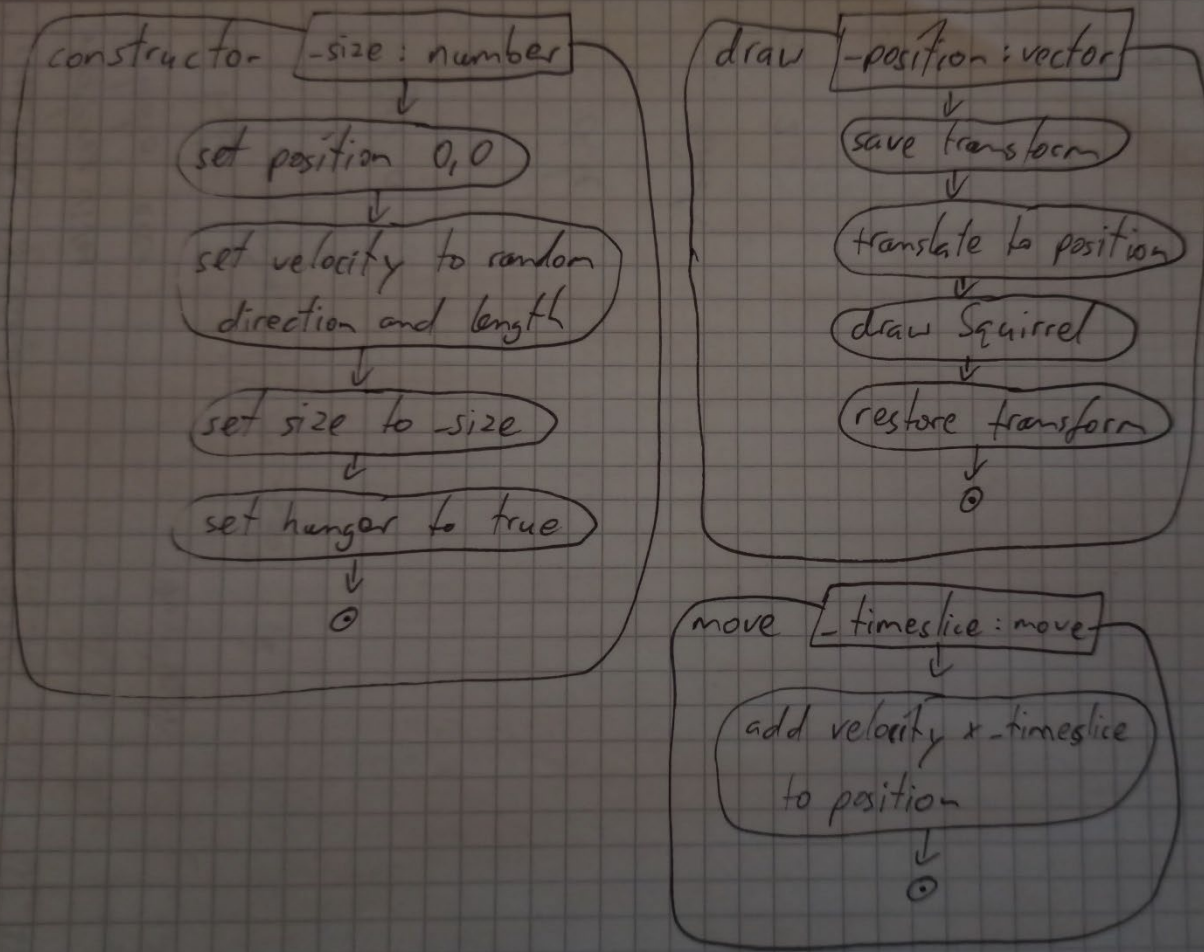 constructor
_size : number
set position 0,0
set velocity to random
direction and length
set size to _size
set hunger to true
draw
_position : vector
save transform
translate to position
draw Squirrel
restore transform
move
_timeslice : move
add velocity x _timeslice
to position